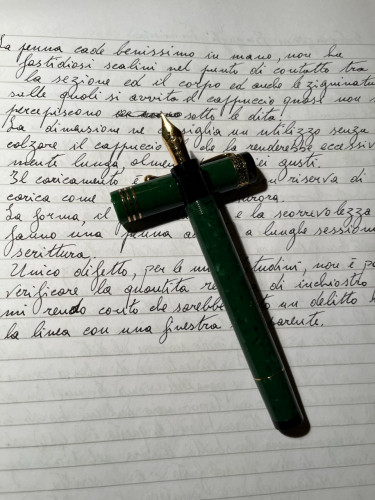 La penna cade benissimo in mano, non ha
fastidiosi scalini nel punto di contatto tra
la sezione ed il corpo ed anche le zigrinatur
sulle quali si avvita il cappuccio quasi non s
percepiscono sotto le dita!
La dimensione ne consiglia un utilizzo senza
calzare il cappuccio che la renderebbe eccessiv
mente lunga, almeno miei gusti.
Il caricamento riserva di
carica come Aurora.
La forma, il e la scorrevolezza
fanno una penna a lunghe sessioni
scrittura.
Unico difetto, per le mie abitudini, non è p
verificare la quantità di inchiostro
mi rendo conto che sarebbe un delitto
la linea con una finestra trasparente.